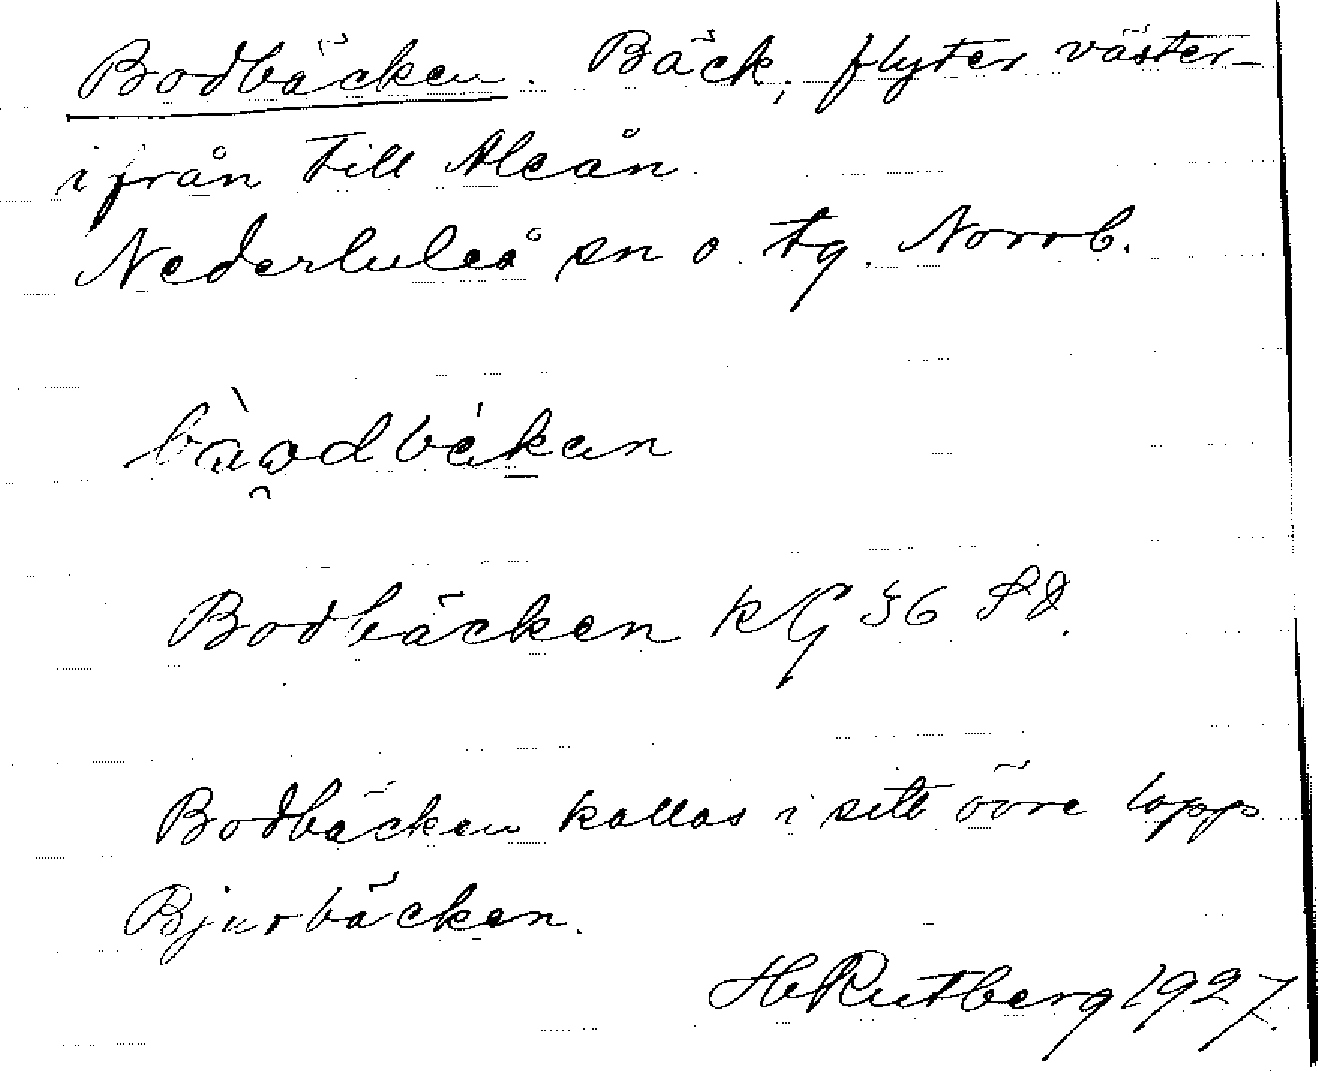 Bodbäcken. Bäck, flyter väster-
ifrån till Aleån.
Nederluleå sn o. tg. Norrb.
Bodbäcken kG 36 SO.
Bodbäcken kallas i sitt övre lopp
Bjurbäcken.
H Rutberg 1927.